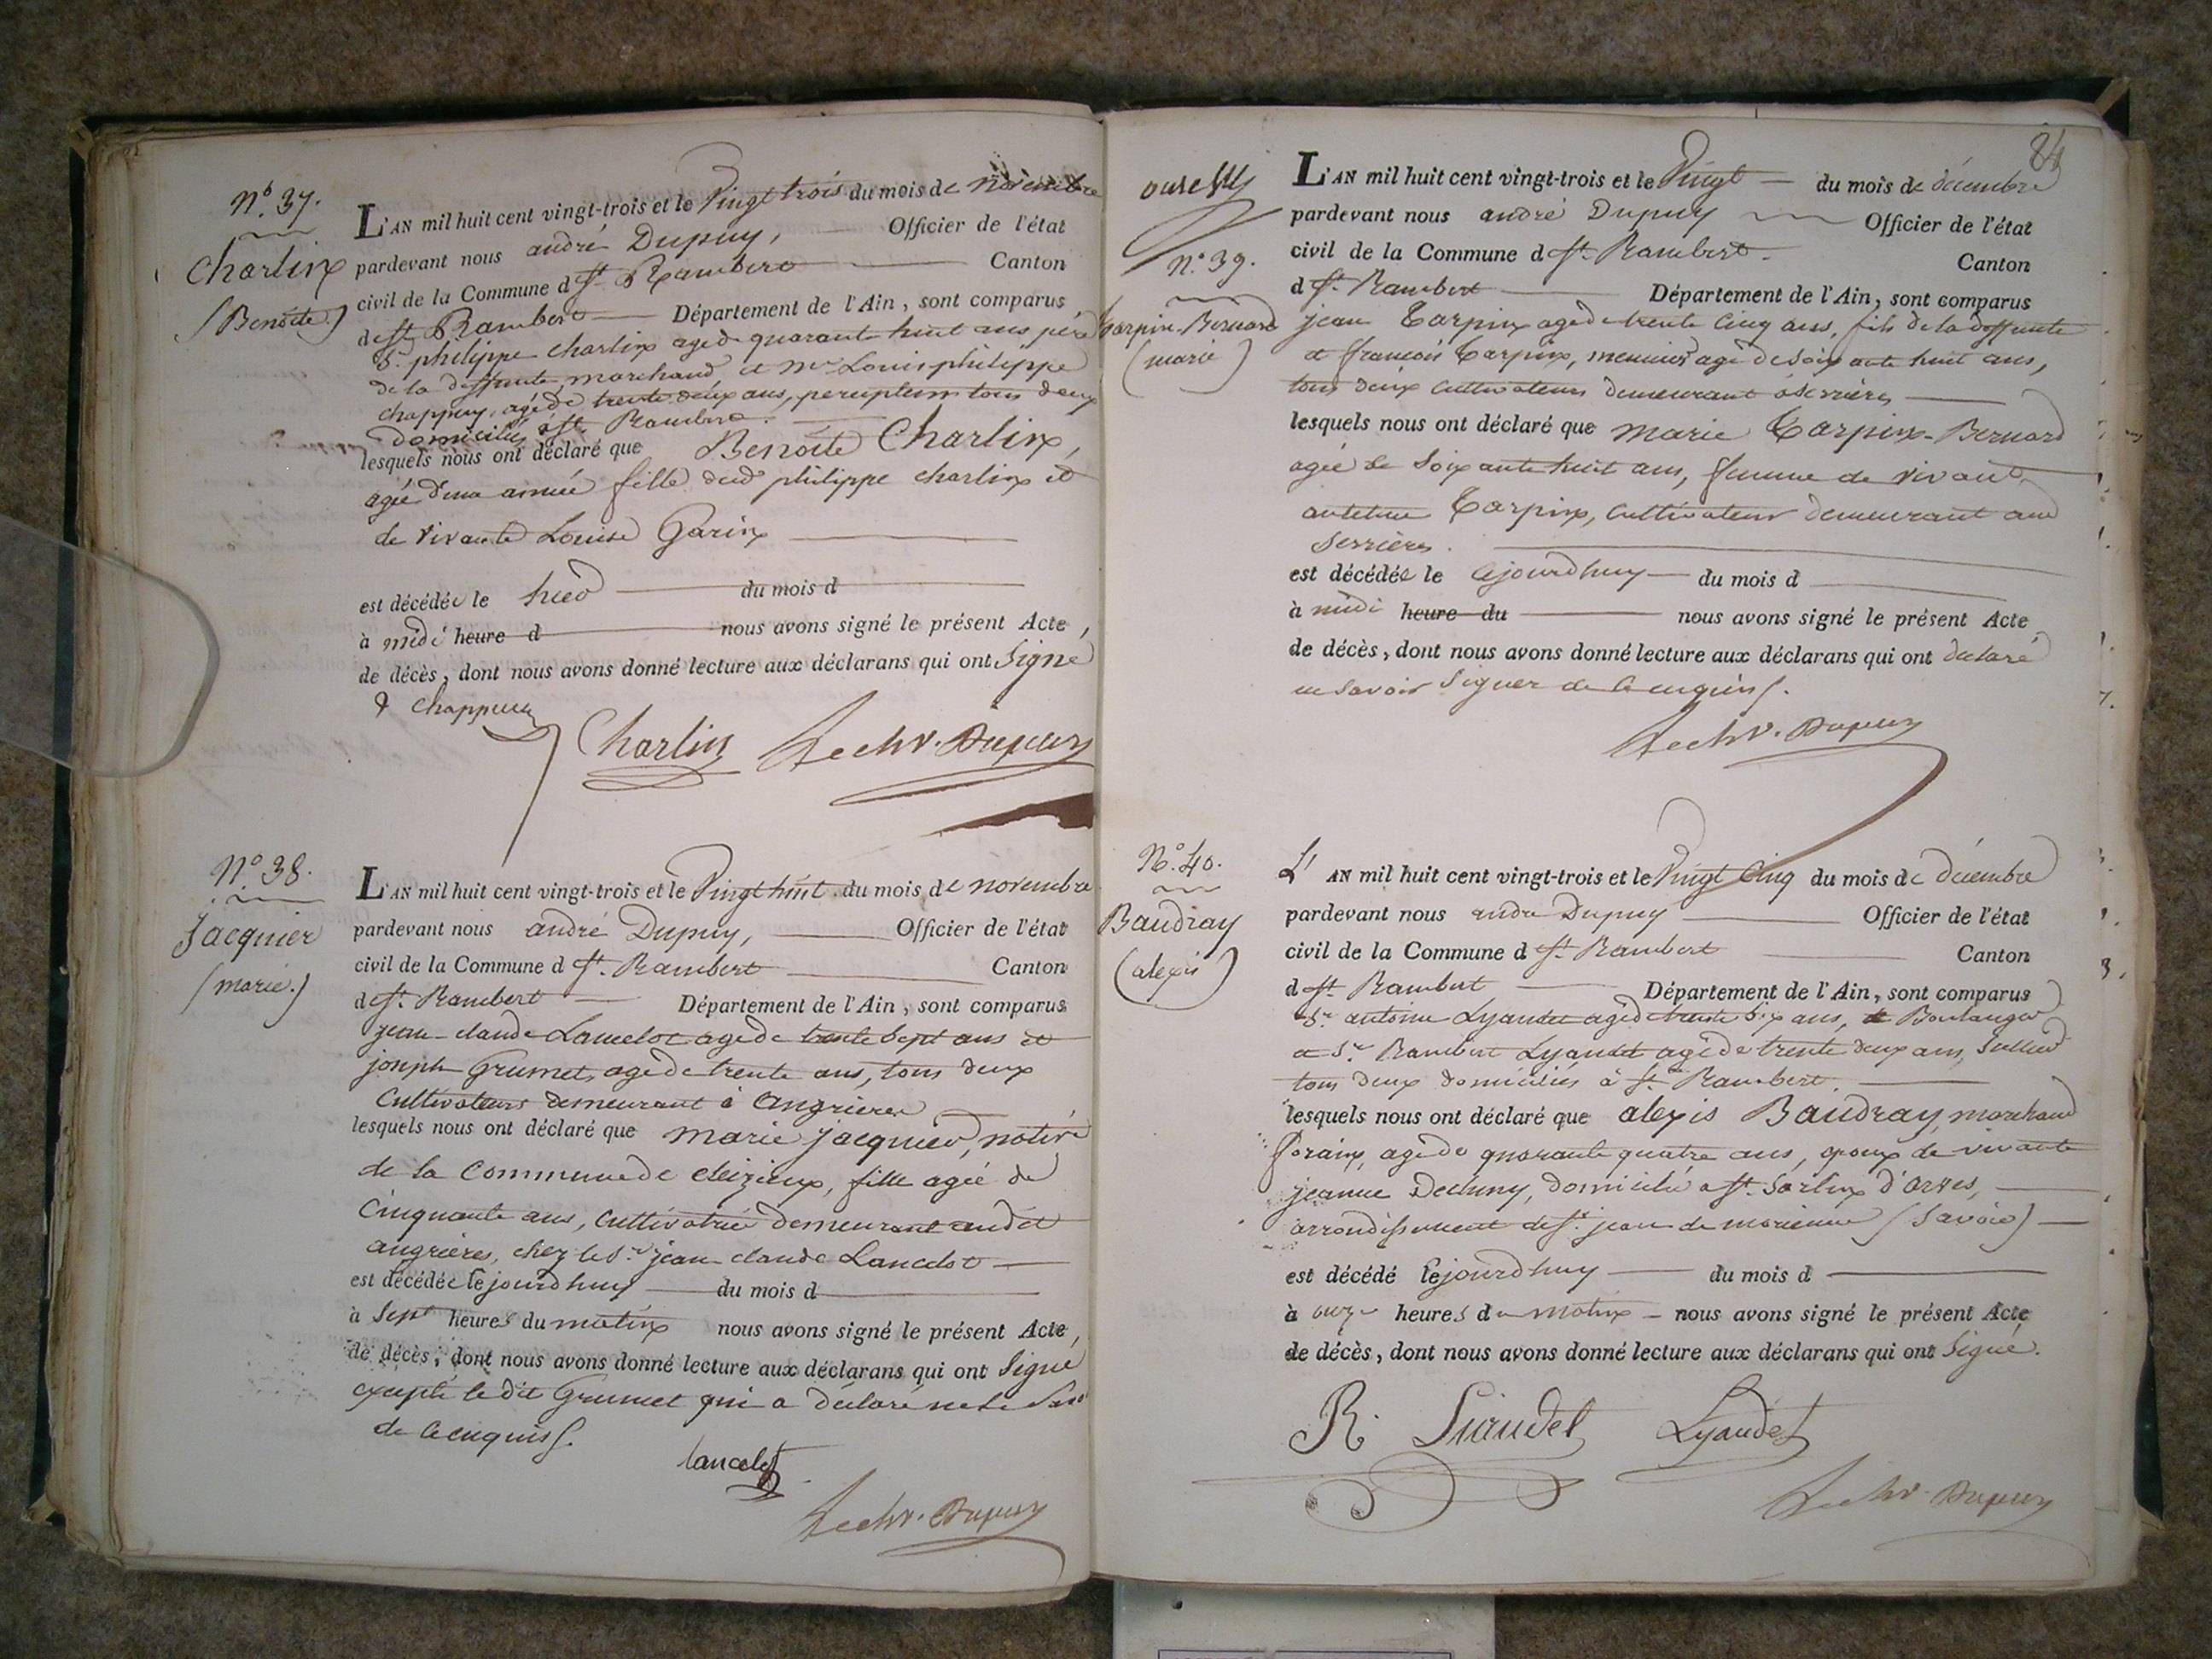 Nº. 37.
Charlin
(Benoite)
L'AN mil huit cent vingt-trois et le Vingt trois du mois de novembre
pardevant nous andré Dupuy, Officier de l'état
civil de la Commune d St. Rambert Canton
de St. Rambert Département de l'Ain, sont comparus
Sr. philippe charlin agé de quarant huit ans, père
de la deffunte, marchand, et Mr. Louis philippe
chappuy, agé de trente deux ans, tous deux
domiciliés à St. Rambert.
lesquels nous ont déclaré que Benoite Charlin,
agée d'une année fille dud. philippe charlin et
de vivante Louise Garin
est décédée le hier du mois d
à midi heure d nous avons signé le présent Acte,
de décès, dont nous avons donné lecture aux déclarans qui ont Signé
Chappuy
Charlin Dupuy
Nº. 38.
Jacquier
(marie.)
L'AN mil huit cent vingt-trois et le Vingt huit du mois de novembre
pardevant nous andré Dupuy, Officier de l'état
civil de la Commune d St. Rambert Canton
de St. Rambert Département de l'Ain, sont comparus
jean-claude Lancelot agé de trente Sept ans et
joseph Grumet, agé de trente ans, tous deux
Cultivateurs demeurant à angrieres
lesquels nous ont déclaré que marie jacquier, native
de la Commune de cleizieux, fille agée de
Cinquante ans, cultivatrice demeurant audit
angrières, chez le Sr. jean claude Lancelot
est décédée cejourdhuy du mois d
à Sept heures du matin nous avons signé le présent Acte,
de décès, dont nous avons donné lecture aux déclarans qui ont Signé
excepté le dit Grumet qui a déclaré ne le
de ce enquis.
Lancelot
Dupuy
84
Nº. 39.
Carpin-Bernard
(marie)
L'AN mil huit cent vingt-trois et le Vingt du mois de décembre
pardevant nous andré Dupuy Officier de l'état
civil de la Commune d St. Rambert Canton
d St. Rambert Département de l'Ain, sont comparus
jean Carpin agé de trente Cinq ans, fils de la deffunte
et francois Carpin, meunier agé de Soixante huit ans,
tous deux cultivateurs demeurant à Serrières
lesquels nous ont déclaré que marie Carpin-Bernard
agée de Soixante huit ans, femme de vivant
antelme Carpin, cultivateur demeurant aud.
Serrières.
est décédée le cejourdhuy du mois d
à midi heure du nous avons signé le présent Acte
de décès, dont nous avons donné lecture aux déclarans qui ont déclaré
ne savoir Signer de ce enquis.
Dupuy
Nº. 40.
Baudray
(alexis)
L'AN mil huit cent vingt-trois et le Vingt Cinq du mois de décembre
pardevant nous andré Dupuy Officier de l'état
civil de la Commune d St. Rambert Canton
d St. Rambert Département de l'Ain, sont comparus
Sr. antoine Lyaudet agé de trente Six ans, Boulanger
et Sr. Rambert Lyaudet agé de trente deux ans, Sellier
tous deux domiciliés à St. Rambert.
lesquels nous ont déclaré que alexis Baudray, marchand
forain, agé de quarante quatre ans, époux de vivante
jeanne Decluny, domicilié à St. Sorlin d'arves,
arrondissement de St. jean de morienne (Savoie)
est décédé cejourdhuy du mois d
à onze heures du matin nous avons signé le présent Acte
de décès, dont nous avons donné lecture aux déclarans qui ont Signé.
R. Liaudet Lyaudet
Dupuy